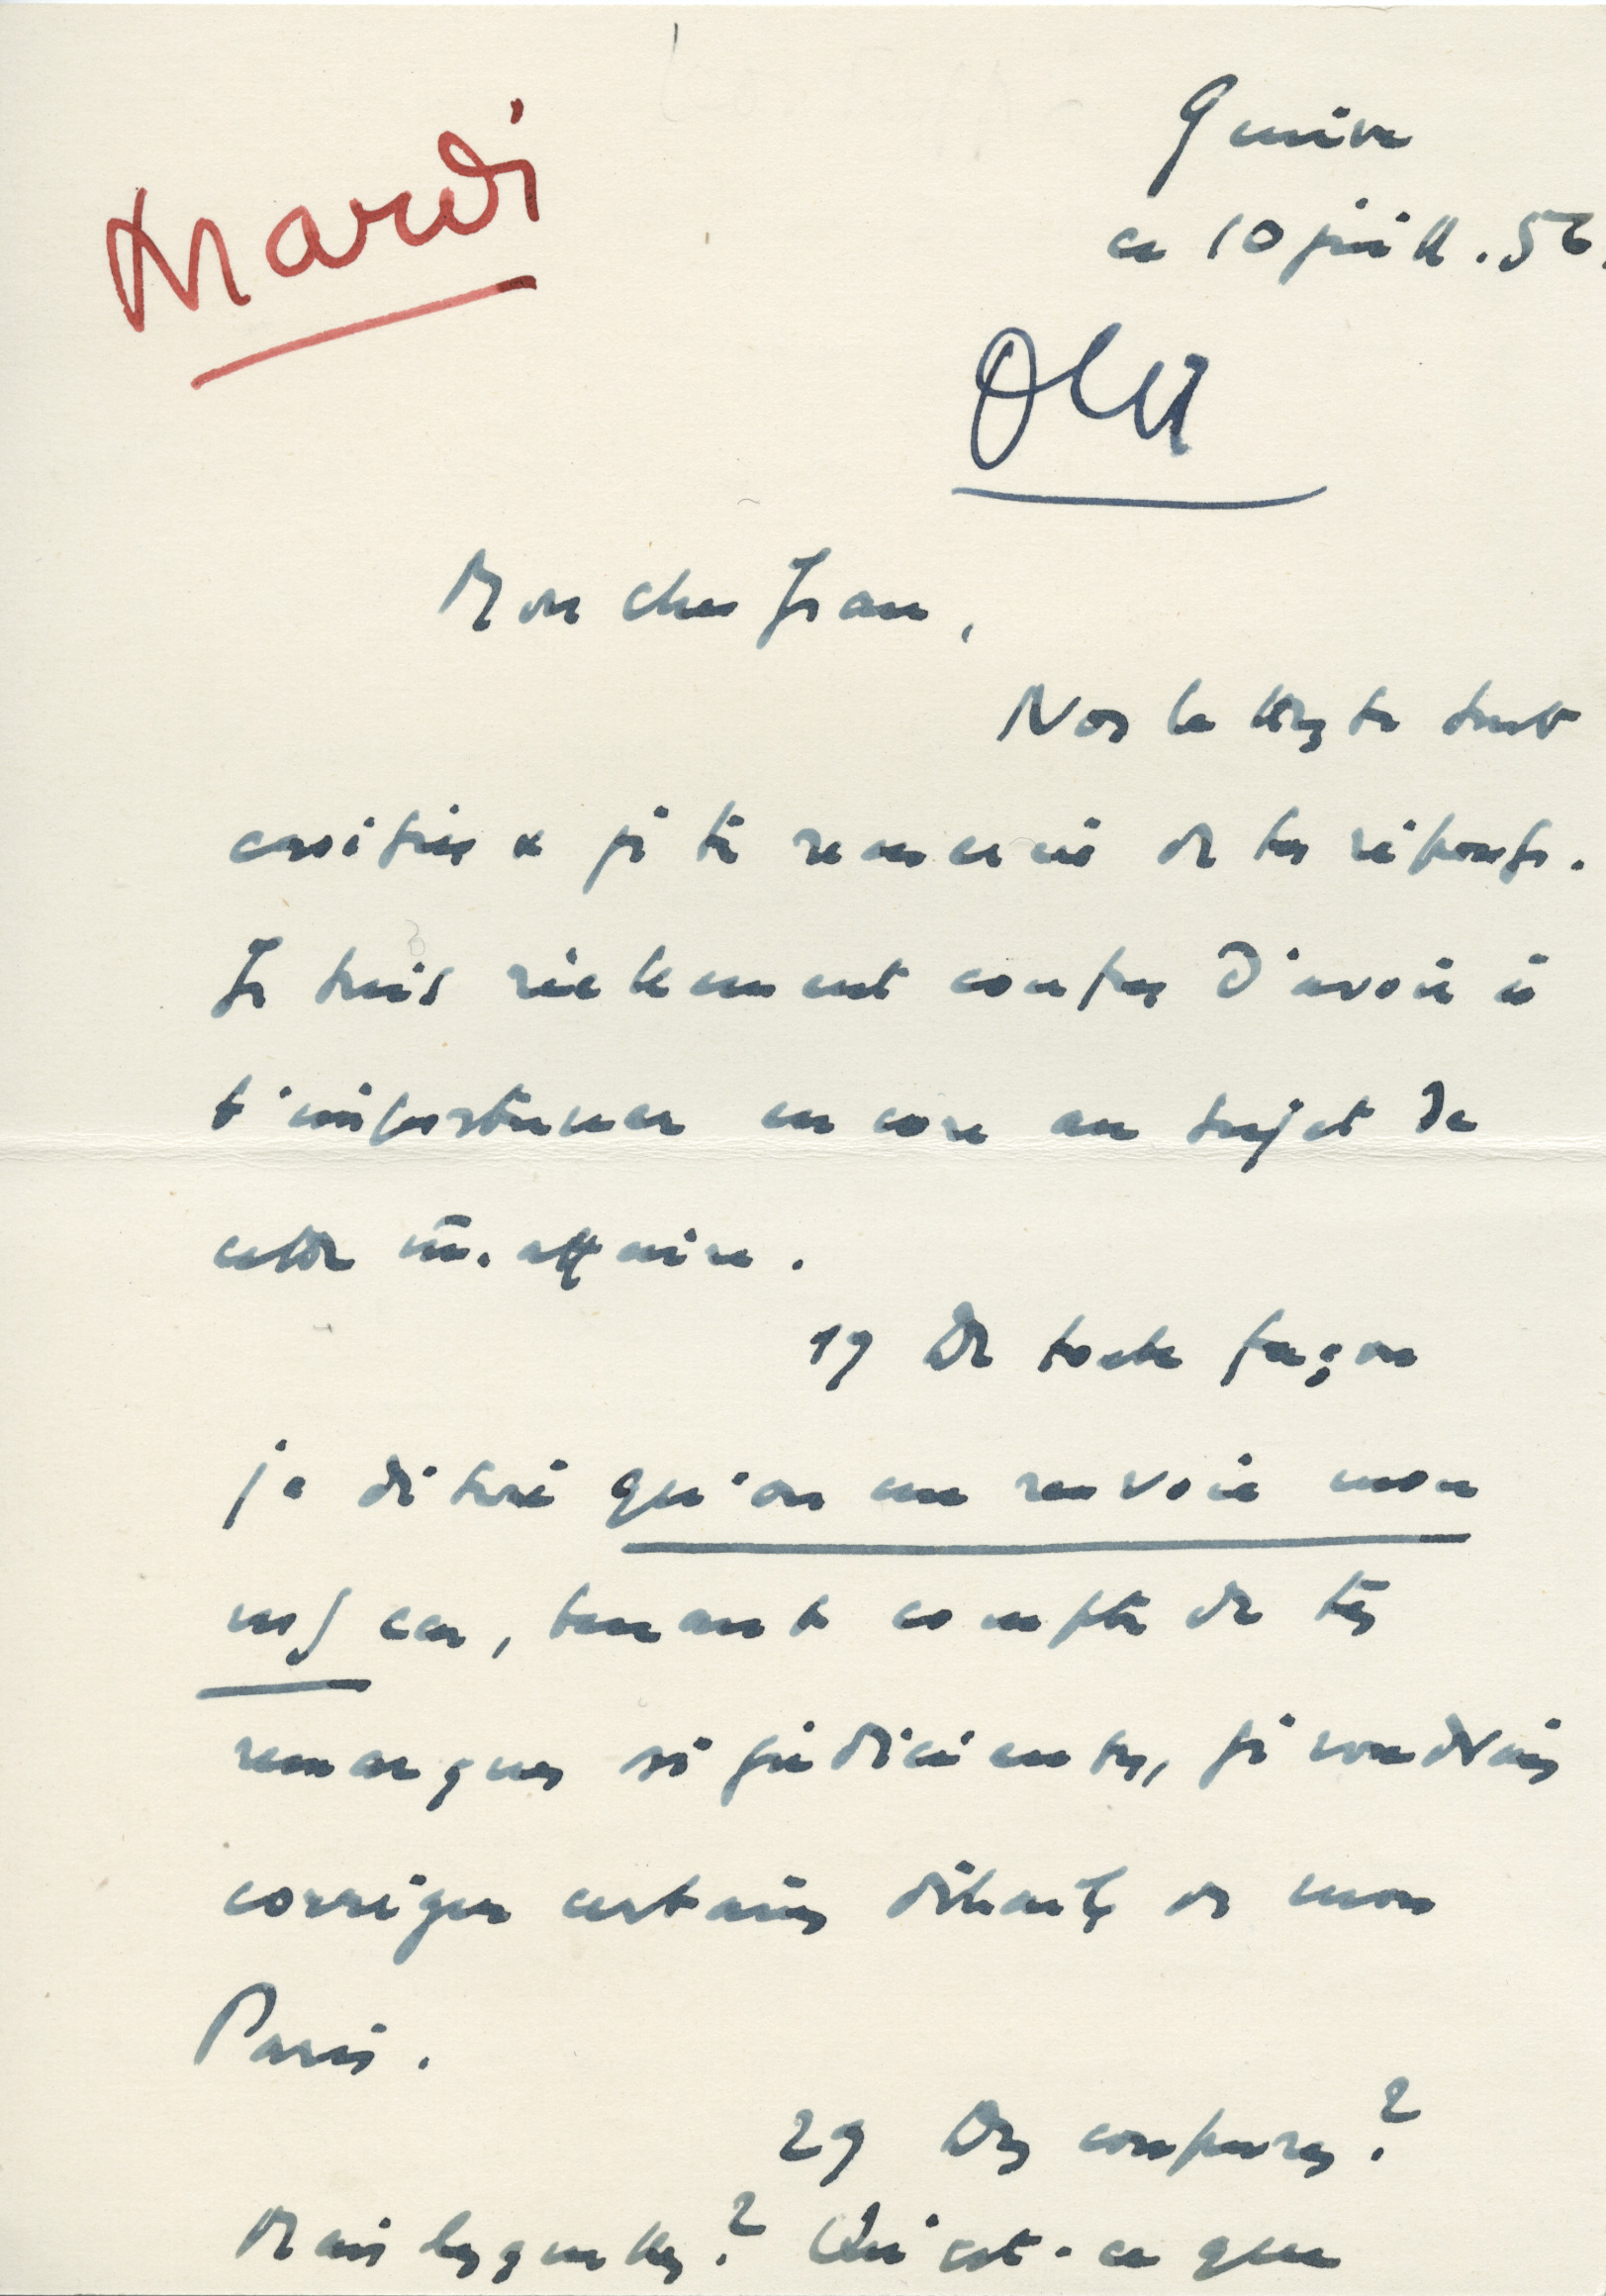 Mardi
Genève
ce 10 juill. 56.
Mon cher Jean,
Nos lettres se sont
croisées et je te remercie de tes réponses.
Je suis réellement confus d'avoir à
t'importuner encore au sujet de
cette affaire.
1º De toute façon
je désire qu'on me renvoie mon
ms car, tenant compte de tes
remarques si judicieuses, je voudrais
corriger certains détails de mon
Paris.
2º Des coupures ?
Mais lesquelles ? Qu'est-ce que